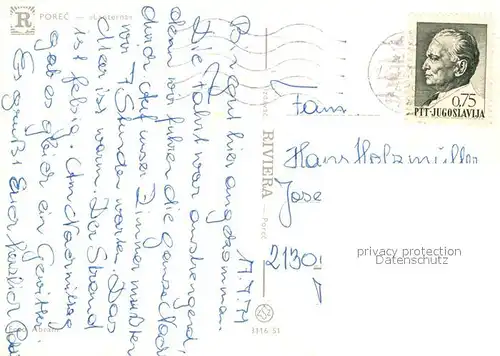 POREČ — »Lanterna«
R
17.7.71
Gut hier angekommen.
Die Fahrt war anstrengend,
denn wir fuhren die ganze Nacht
durch. Auf unser Zimmer mußten
wir 7 Stunden warten. Das
Meer ist warm. Der Strand
ist felsig. Am Nachmittag
gab es gleich ein Gewitter.
Es grüßt Euch herzlich
RIVIERA
Poreč
Abram
111A 51
0.75
PTT-JUGOSLAVIJA
Fam
Hans Holzmüller
2130
privacy protection
Datenschutz